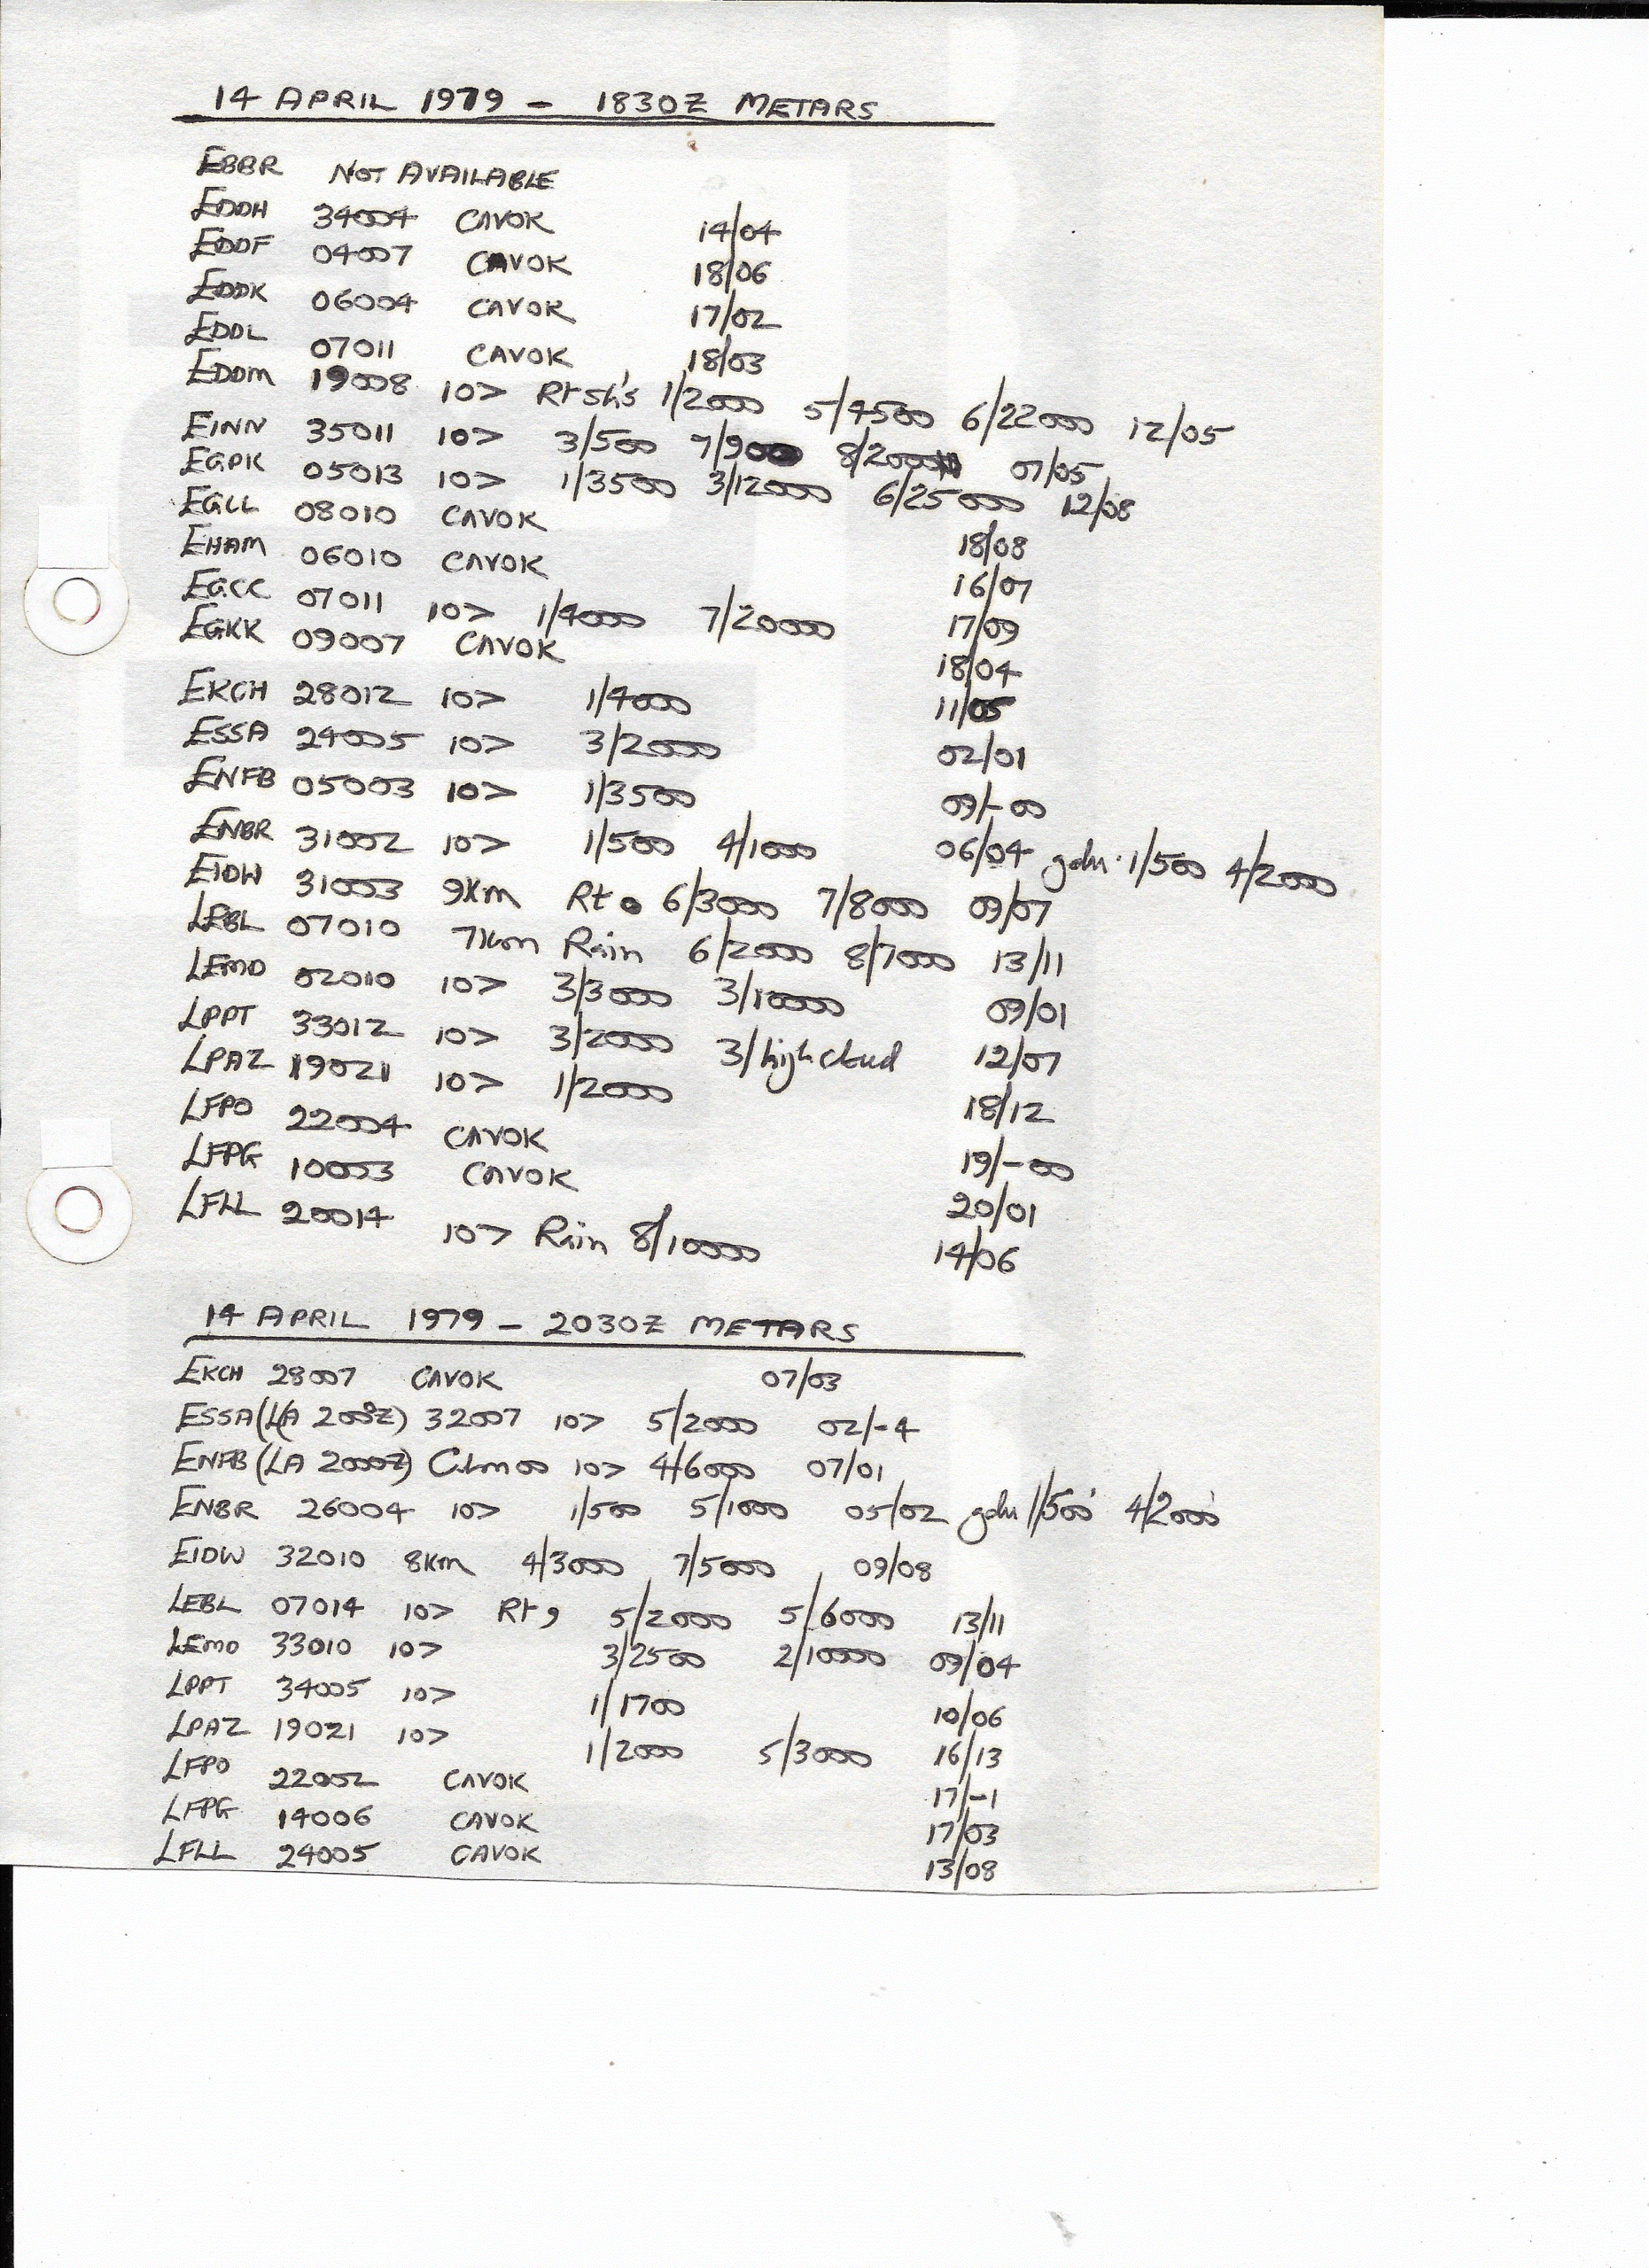 14 APRIL 1979 - 1830Z METARS
EBBR NOT AVAILABLE
EDDH 34004 CAVOK 14/04
EDDF 04007 CAVOK 18/06
EDDK 06004 CAVOK 17/02
EDDL 07011 CAVOK 18/03
EDDM 19008 10> Rt sh's 1/2000 5/4500 6/22000 12/05
EINN 35011 10> 3/500 7/900 8/2000 07/05
EGPK 05013 10> 1/3500 3/12000 6/25000 12/08
EGLL 08010 CAVOK 18/08
EHAM 06010 CAVOK 16/07
EGCC 07011 10> 1/4000 7/20000 17/09
EGKK 09007 CAVOK 18/04
EKCH 28012 10> 1/4000 11/05
ESSA 24005 10> 3/2000 02/01
ENFB 05003 10> 1/3500 09/-00
ENBR 31002 10> 1/500 4/1000 06/04 gdu 1/500 4/2000
EIDW 31003 9Km Rt 6/3000 7/8000 09/07
LEBL 07010 7Km Rain 6/2000 8/7000 13/11
LEMD 02010 10> 3/3000 3/10000 09/01
LPPT 33012 10> 3/2000 3/high cloud 12/07
LPAZ 19021 10> 1/2000 18/12
LFPO 22004 CAVOK 19/-00
LFPG 10003 CAVOK 20/01
LFLL 20014 10> Rain 8/10000 14/06
14 APRIL 1979 - 2030Z METARS
EKCH 28007 CAVOK 07/03
ESSA (LA 2000Z) 32007 10> 5/2000 02/-4
ENFB (LA 2000Z) Calm 00 10> 4/6000 07/01
ENBR 26004 10> 1/500 5/1000 05/02 gdu 1/500' 4/2000'
EIDW 32010 8Km 4/3000 7/5000 09/08
LEBL 07014 10> Rt , 5/2000 5/6000 13/11
LEMD 33010 10> 3/2500 2/10000 09/04
LPPT 34005 10> 1/1700 10/06
LPAZ 19021 10> 1/2000 5/3000 16/13
LFPO 22002 CAVOK 17/-1
LFPG 14006 CAVOK 17/03
LFLL 24005 CAVOK 13/08